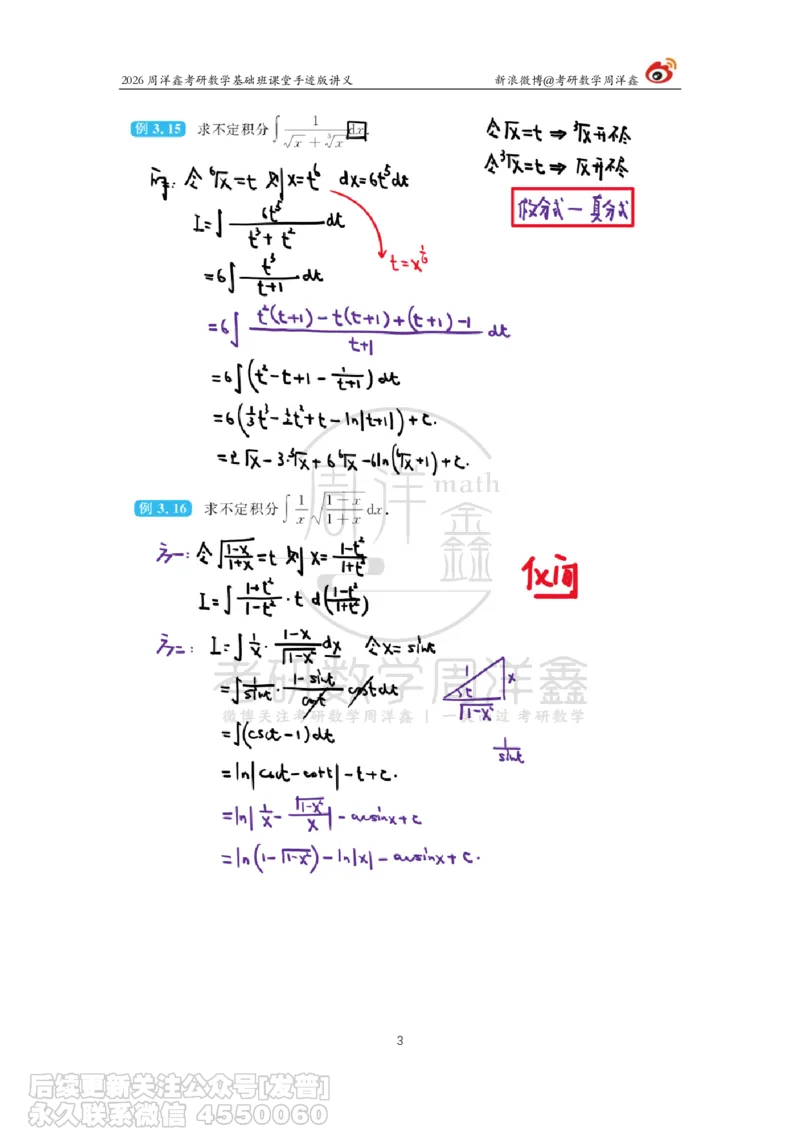 2026 周洋鑫考研数学基础班课堂手迹版讲义 新浪微博@考研数学周洋鑫
例 3.15 求不定积分∫ 1/(√x + ∛x) dx.
令√x=t ⇒ ∛x开不尽
令∛x=t ⇒ √x开不尽
假分式—真分式
解: 令 ⁶√x=t 则 x=t⁶ dx=6t⁵dt
I=∫ 6t⁵/(t³+t²) dt
t=x^(1/6)
=6∫ t³/(t+1) dt
=6∫ [t²(t+1)-t(t+1)+(t+1)-1]/(t+1) dt
=6∫(t²-t+1-1/(t+1))dt
=6(1/3 t³-1/2 t²+t-ln|t+1|)+C.
=2√x-3·∛x+6 ⁶√x-6ln(⁶√x+1)+C.
例 3.16 求不定积分∫ 1/x √((1-x)/(1+x)) dx.
方一: 令√((1-x)/(1+x))=t 则 x=(1-t²)/(1+t²)
I=∫ (1+t²)/(1-t²)·t d((1-t²)/(1+t²))
方二: I=∫ 1/x·(1-x)/√(1-x²) dx 令x=sint
=∫ 1/sint·(1-sint)/cost costdt
1 x t √(1-x²)
1/sint
=∫(csct-1)dt
=ln|csct-cott|-t+C.
=ln|1/x-√(1-x²)/x|-arcsinx+C
=ln(1-√(1-x²))-ln|x|-arcsinx+C.
周洋鑫
math
考研数学周洋鑫
微博关注考研数学周洋鑫 |
考研数学
3
后续更新关注公众号[发普]
永久联系微信 4550060